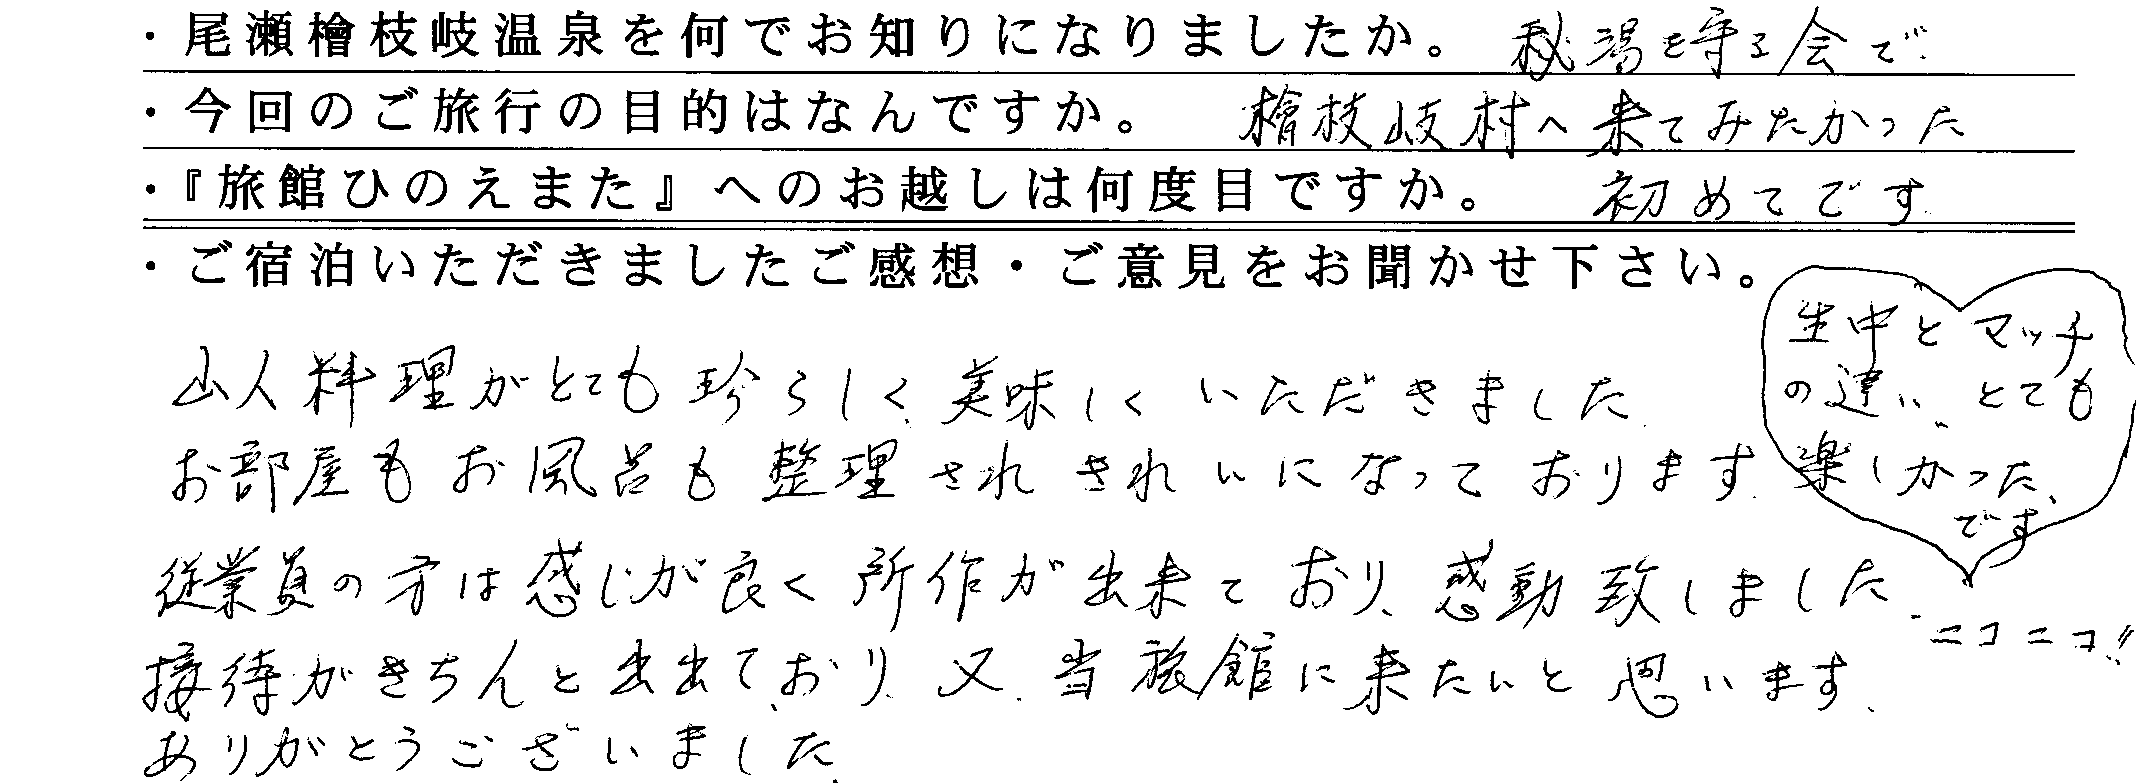 ・尾瀬檜枝岐温泉を何でお知りになりましたか。 秘湯を守る会で
・今回のご旅行の目的はなんですか。 檜枝岐村へ来てみたかった
・『旅館ひのえまた』へのお越しは何度目ですか。 初めてです
・ご宿泊いただきましたご感想・ご意見をお聞かせ下さい。
山人料理がとても珍らしく、美味しくいただきました
お部屋もお風呂も整理されきれいになっております。
従業員の方は感じが良く所作が出来ており、感動致しました
接待がきちんと出出ており、又、当旅館に来たいと思います。
ありがとうございました。
生中とマッチ
の違い、とても
楽しかった、
です
ニコニコ!!